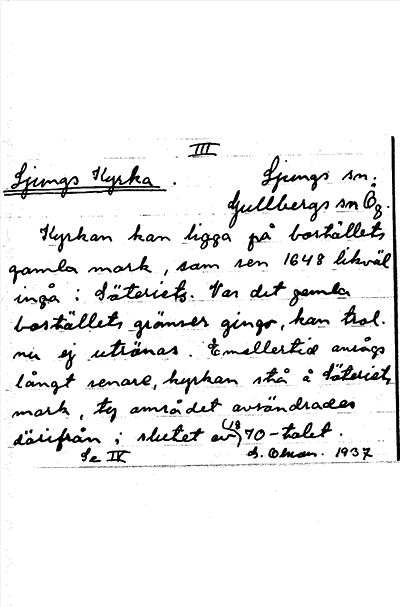 III
Ljungs Kyrka. Ljungs sn.
Gullbergs sn Ög.
Kyrkan kan ligga på boställets
gamla mark, som sen 1648 likväl
ingå i Säteriets. Var det gamla
boställets gränser gingo, kan trol.
nu ej utrönas. Emellertid ansågs
långt senare, kyrkan stå å Säteriets
mark, ty området avsöndrades
därifrån i slutet av (18)70-talet.
Se IV 1937